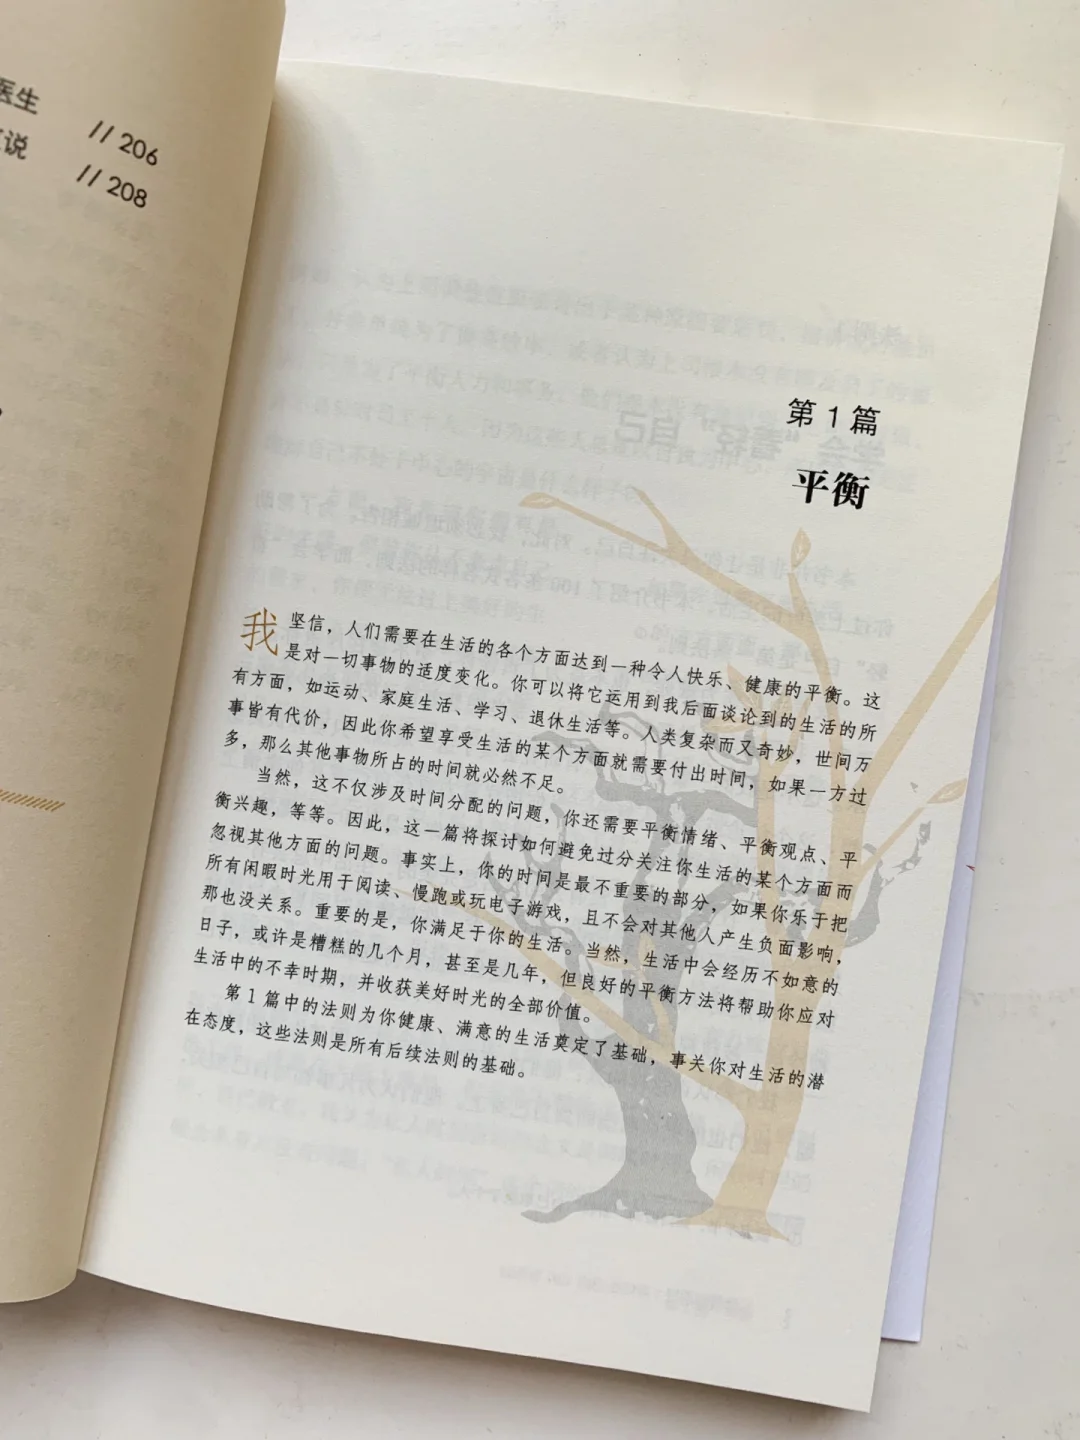 医生 // 206
说 // 208
第1篇
平衡
我坚信，人们需要在生活的各个方面达到一种令人快乐、健康的平衡。这
是对一切事物的适度变化。你可以将它运用到我后面谈论到的生活的所
有方面，如运动、家庭生活、学习、退休生活等。人类复杂而又奇妙，世间万
事皆有代价，因此你希望享受生活的某个方面就需要付出时间，如果一方过
多，那么其他事物所占的时间就必然不足。
当然，这不仅涉及时间分配的问题，你还需要平衡情绪、平衡观点、平
衡兴趣，等等。因此，这一篇将探讨如何避免过分关注你生活的某个方面而
忽视其他方面的问题。事实上，你的时间是最不重要的部分，如果你乐于把
所有闲暇时光用于阅读、慢跑或玩电子游戏，且不会对其他人产生负面影响，
那也没关系。重要的是，你满足于你的生活。当然，生活中会经历不如意的
日子，或许是糟糕的几个月，甚至是几年，但良好的平衡方法将帮助你应对
生活中的不幸时期，并收获美好时光的全部价值。
第1篇中的法则为你健康、满意的生活奠定了基础，事关你对生活的潜
在态度，这些法则是所有后续法则的基础。